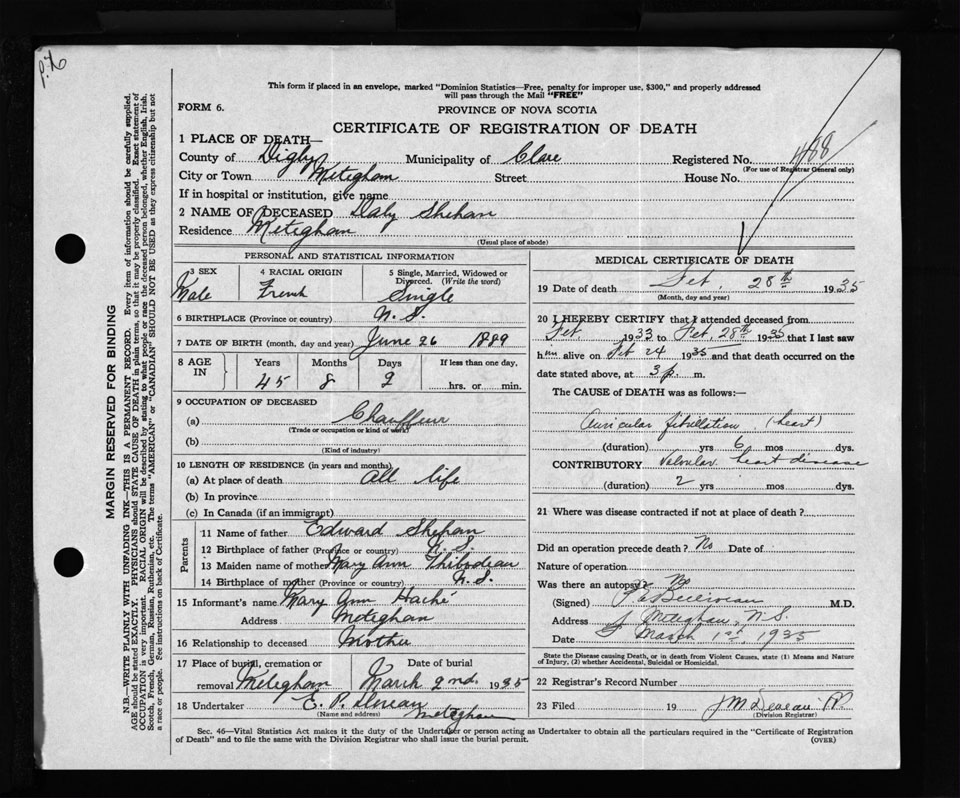 This form if placed in an envelope, marked "Dominion Statistics—Free, penalty for improper use, $300," and properly addressed
will pass through the Mail "FREE"
FORM 6.
PROVINCE OF NOVA SCOTIA
CERTIFICATE OF REGISTRATION OF DEATH
1 PLACE OF DEATH—
County of Digby Municipality of Clare Registered No. 488
(For use of Registrar General only)
City or Town Meteghan Street House No.
If in hospital or institution, give name
2 NAME OF DECEASED Daly Shehan
Residence Meteghan
(Usual place of abode)
PERSONAL AND STATISTICAL INFORMATION
3 SEX 4 RACIAL ORIGIN 5 Single, Married, Widowed or
Divorced. (Write the word)
Male French Single
6 BIRTHPLACE (Province or country) N.S.
7 DATE OF BIRTH (month, day and year) June 26 1889
8 AGE IN Years Months Days If less than one day,
45 8 2 hrs. or min.
9 OCCUPATION OF DECEASED
(a) Chauffeur
(Trade or occupation or kind of work)
(b)
(Kind of industry)
10 LENGTH OF RESIDENCE (in years and months)
(a) At place of death All life
(b) In province
(c) In Canada (if an immigrant)
Parents
11 Name of father Edward Shehan
12 Birthplace of father (Province or country) N.S.
13 Maiden name of mother Mary Ann Thibodeau
14 Birthplace of mother (Province or country) N.S.
15 Informant's name Mary Ann Haché
Address Meteghan
16 Relationship to deceased Mother
17 Place of burial, cremation or Date of burial
removal Meteghan March 2nd. 1935
18 Undertaker E. P.
(Name and address) Meteghan
MEDICAL CERTIFICATE OF DEATH
19 Date of death Feb. 28th 1935
(Month, day and year)
20 I HEREBY CERTIFY that I attended deceased from
Feb. 1933 to Feb. 28th 1935 that I last saw
him alive on Feb 24 1935 and that death occurred on the
date stated above, at 3 p. m.
The CAUSE of DEATH was as follows:—
Auricular fibrillation (heart)
(duration) yrs 6 mos dys.
CONTRIBUTORY Valvular heart disease
(duration) 2 yrs mos dys.
21 Where was disease contracted if not at place of death?
Did an operation precede death? No Date of
Nature of operation
Was there an autopsy? No
(Signed) M.D.
Address Meteghan, N.S.
Date March 1st 1935
State the Disease causing Death, or in death from Violent Causes, state (1) Means and Nature
of Injury, (2) whether Accidental, Suicidal or Homicidal.
22 Registrar's Record Number
23 Filed 19 J M Deveau R.
(Division Registrar)
Sec. 46—Vital Statistics Act makes it the duty of the Undertaker or person acting as Undertaker to obtain all the particulars required in the "Certificate of Registration
of Death" and to file the same with the Division Registrar who shall issue the burial permit.
(OVER)
MARGIN RESERVED FOR BINDING
N.B.—WRITE PLAINLY WITH UNFADING INK—THIS IS A PERMANENT RECORD. Every item of information should be carefully supplied.
AGE should be stated EXACTLY. PHYSICIANS should STATE CAUSE OF DEATH in plain terms, so that it may be properly classified. Exact statement of
OCCUPATION is very important. RACIAL ORIGIN will be described by stating to what people or race the deceased person belonged, whether English, Irish,
Scotch, French, German, Russian, Ruthenian, etc. The terms "AMERICAN" or "CANADIAN" SHOULD NOT BE USED as they express citizenship but not
a race or people. See instructions on back of Certificate.